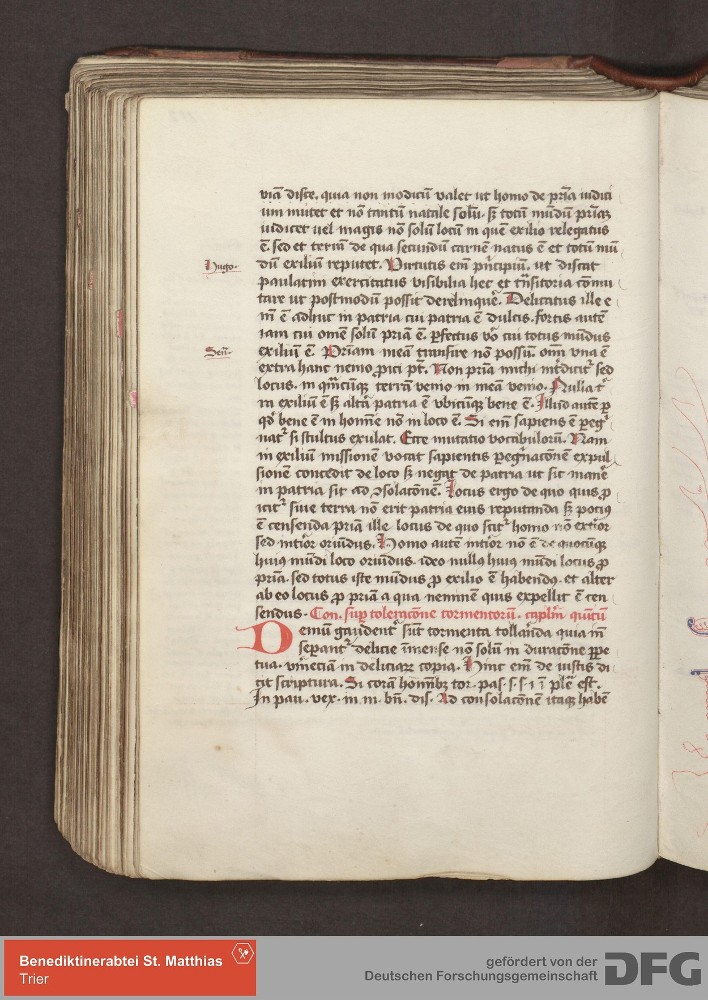 viā disce. quia non modicū valet ut homo de pr̄ia iudici
um mutet et nō tantū natale solū. sꝫ totū mūdū pr̄iaꝫ
iudicet uel magis nō solū locū in quē exilio relegatus
ē. sed et terrā de qua secundū carnē natus ē et totū mū
Hugo.
dū exiliū reputet. Virtutis em̄ pͥncipiū. ut discat
paulatim exercitatus visibilia hec et tͣnsitoria cōmu
tare ut postmodū possit derelinquē. Delicatus ille e
ni ē adhuc in patria cui patria ē dulcis. fortis autē
iam cui omē solū pr̄ia ē. ꝑfectus vͦo cui totus mūdus
Sen̄.
exiliū ē. Pr̄iam meā transire nō possū. oīm vna ē
extra hanc nemo ꝓici pt̄. Non pr̄ia michi int̄dicitͬ sed
locus. in qͣmcūqꝫ terrā venio in meā venio. Nulla tͬ
ra exiliū ē sꝫ altā patria ē vbicūqꝫ bene ē. Illud autē ꝑ
qd̄ bene ē in homīne nō in loco ē. Si em̄ sapiens ē ꝑegͥ
natͬ si stultus exulat. Ecce mutatio vocabulorū. Nam
in exiliū missionē vocat sapientis ꝑegͥnacōnē expul
sionē concedit de loco sꝫ negat de patria ut sit manē
in patria sit ad ɔsolacōnē. Locus ergo de quo quis ꝓ
icitͬ siue terra nō erit patria eius reputanda sꝫ pocius
ē censenda pr̄ia ille locus de quo scitͬ homo nō extīor
sed intīor oriūdus. Homo autē intīor nō ē de quocūqꝫ
huiꝰ mūdi loco oriūdus. ideo nullꝰ huiꝰ mūdi locus ꝓ
pr̄ia. sed totus iste mūdus ꝓ exilio ē habendꝰ. et alter
ab eo locus ꝓ pr̄ia a qua neminē quis expellit ē cen
sendus. Con. suꝑ toleracōne tormentorū. cap̄lm̄ quītū
Demū gaudentͬ sūt tormenta tollāda quia in̄
seꝑantͬ delicie īmense nō solū in duracōne ꝑpe
tua. vīmeciā in deliciaꝝ copia. Hinc em̄ de iustis di
cit scriptura. Si corā homībꝫ tor. pas. s. s. i ī plē est.
In pau. vex. in m. bn̄. dis. Ad consolacōnē itaqꝫ habē
Benediktinerabtei St. Matthias
Trier
gefördert von der
Deutschen Forschungsgemeinschaft
DFG